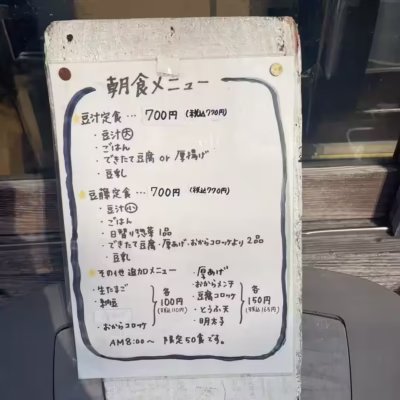 朝食メニュー
豆汁定食 … 700円 (税込770円)
・豆汁大
・ごはん
・できたて豆腐 or 厚揚げ
・豆乳
豆藤定食 … 700円 (税込770円)
・豆汁小
・ごはん
・日替り惣菜 1品
・できたて豆腐・厚あげ・おからコロッケより 2品
・豆乳
その他 追加メニュー
・生たまご
・納豆
・おからコロッケ
各100円 (税込110円)
・厚あげ
・おからメンチ
・豆腐コロッケ
・とうふ天
・明太子
各150円 (税込165円)
AM8:00〜 限定50食です。